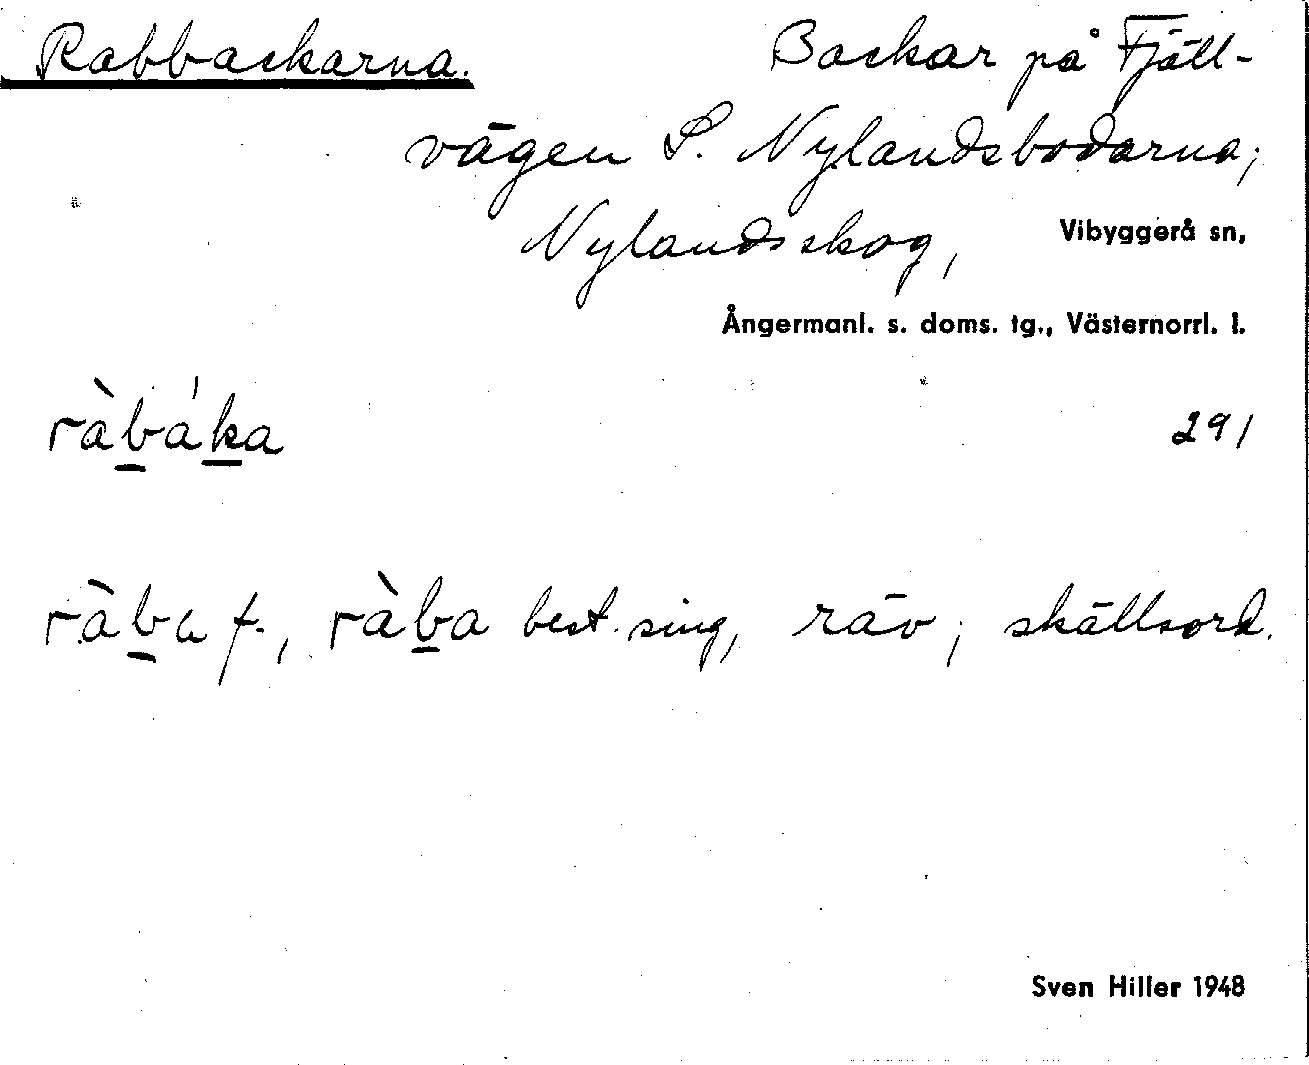 Rabbackarna. Backar på Fjäll-
vägen S. Nylandsbodarna;
Nylandsskog, Vibyggerå sn,
Ångermanl. s. doms. tg., Västernorrl. l.
ràb̲ák̲a 291
ràb̲a f., ràb̲a best. sing, räv; skällsord.
Sven Hiller 1948